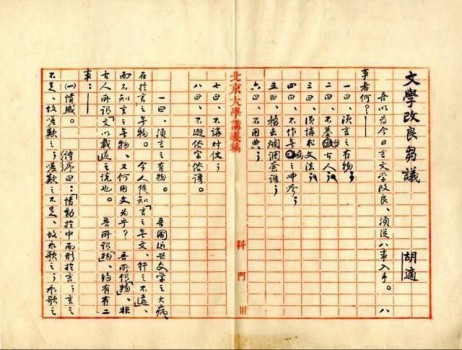 文學改良芻議
胡適
吾以為今日言文學改良,須從八事入手。八
事者何?——
一曰,須言之有物。
二曰,不摹倣古人。
三曰,須講求文法。
四曰,不作無病之呻吟。
五曰,務去爛調套語。
六曰,不用典。
北京大學講義稿
科 門 用
七曰,不講對仗。
八曰,不避俗字俗語。
一曰,須言之有物。吾國近世文學之大病,
在於言之無物。今人徒知「言之無文,行之不遠」,
而不知言之無物,又何用文為乎?吾所謂「物」,非
古人所謂「文以載道」之說也。吾所謂「物」,約有二
事:——
(一)情感。詩序曰:「情動於中而形於言。言之
不足,故嗟歎之。嗟歎之不足,故永歌之。永歌之